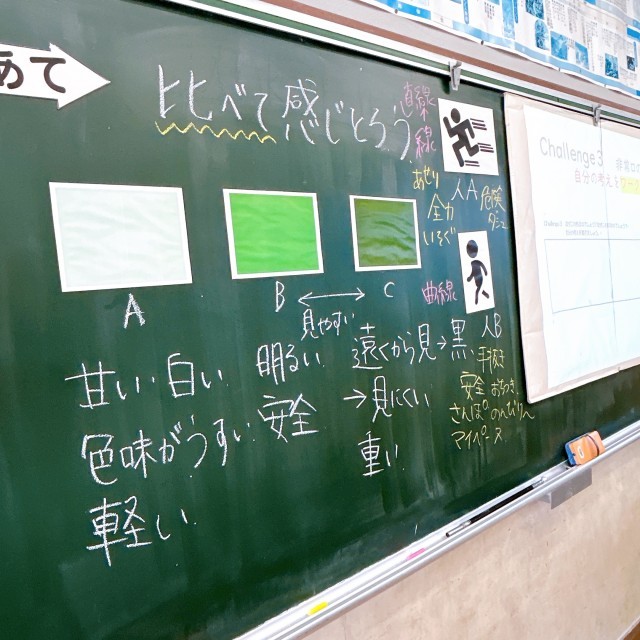 めて
比べて感じとろう
A
B
C
見やすい
甘い 白い
色味がうすい
軽い
明るい
安全
遠くから見→黒
→見にくい
重い
直線
線
あせり
全力
いそぐ
人A
危険
曲線
人B
安全
さんぽ のんびり
マイペース
Challenge3
自分の考えを